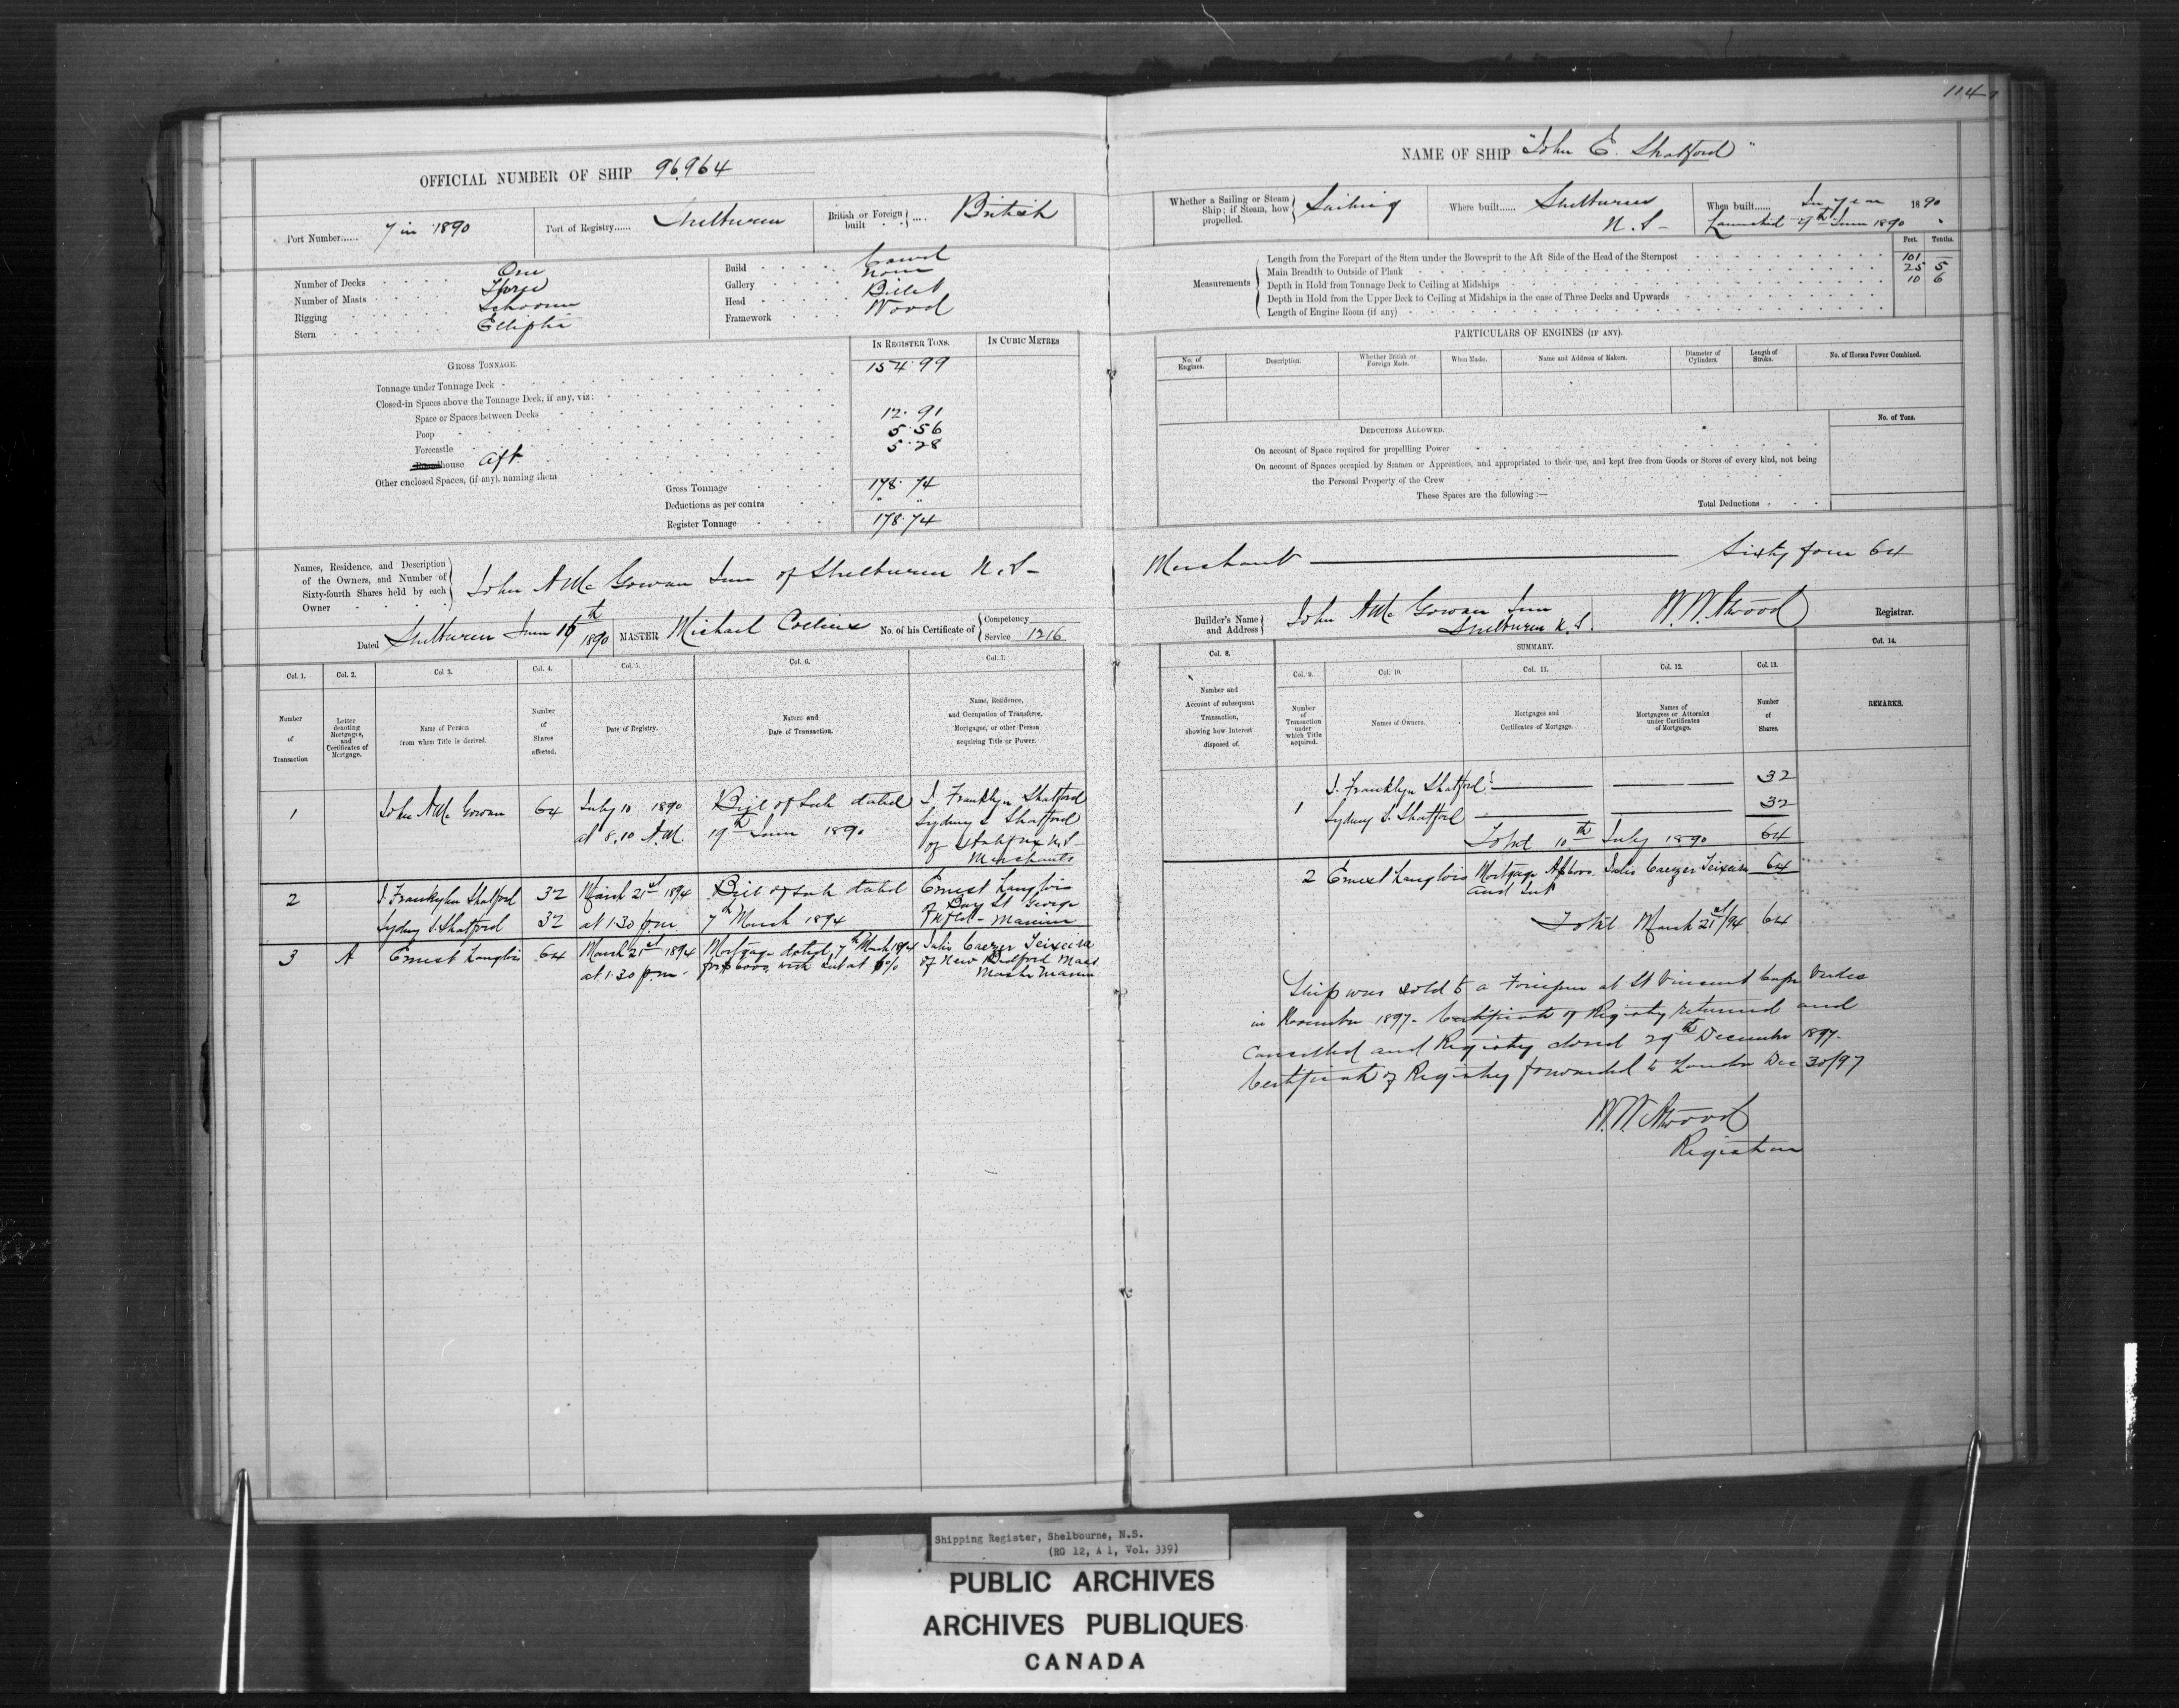 114
OFFICIAL NUMBER OF SHIP 96,964
Port Number...... 7 in 1890
Port of Registry...... Shelburne
British or Foreign built ... British
Number of Decks One
Number of Masts Three
Rigging Schooner
Stern Elliptic
Build Carvel
Gallery None
Head Billet
Framework Wood
IN REGISTER TONS. IN CUBIC METRES
GROSS TONNAGE.
Tonnage under Tonnage Deck 154.99
Closed-in Spaces above the Tonnage Deck, if any, viz:
Space or Spaces between Decks
Poop 12.91
Forecastle 5.56
house Aft 5.28
Other enclosed Spaces, (if any), naming them
Gross Tonnage 178.74
Deductions as per contra
Register Tonnage 178.74
Names, Residence, and Description
of the Owners, and Number of
Sixty-fourth Shares held by each
Owner
John A Mc Gowan Junr of Shelburne N.S-
Dated Shelburne June 16th 1890 MASTER Michael Collins No. of his Certificate of Competency
Service 1216
Col. 1. Col. 2. Col 3. Col. 4. Col. 5. Col. 6. Col. 7.
Number of Transaction
Letter denoting Mortgages, and Certificates of Mortgage.
Name of Person from whom Title is derived.
Number of Shares affected.
Date of Registry.
Nature and Date of Transaction.
Name, Residence, and Occupation of Transferee, Mortgagee, or other Person acquiring Title or Power.
1 John A Mc Gowan 64 July 10 1890 Bill of Sale dated J. Franklyn Shatford
at 8.10 A.M. 19th June 1890 Sydney S Shatford
of Halifax N.S-
Merchants
2 J. Franklyn Shatford 32 March 21st 1894 Bill of Sale dated Ernest Langlois
Sydney S. Shatford 32 at 1.30 p.m. 7th March 1894 of Bay St George
Nfld - Mariner
3 A Ernest Langlois 64 March 21st 1894 Mortgage dated 7th March 1894 Julio Caezer Teixeira
at 1.30 p.m. for $6000 with Int at 6% of New Bedford Mass
Master Mariner
NAME OF SHIP "John E. Shatford"
Whether a Sailing or Steam Ship; if Steam, how propelled. Sailing
Where built...... Shelburne
N.S-
When built...... In year 1890
Launched 9th June 1890
Feet. Tenths.
Measurements
Length from the Forepart of the Stem under the Bowsprit to the Aft Side of the Head of the Sternpost 101 —
Main Breadth to Outside of Plank 25 5
Depth in Hold from Tonnage Deck to Ceiling at Midships 10 6
Depth in Hold from the Upper Deck to Ceiling at Midships in the case of Three Decks and Upwards
Length of Engine Room (if any)
PARTICULARS OF ENGINES (IF ANY).
No. of Engines. Description. Whether British or Foreign Made. When Made. Name and Address of Makers. Diameter of Cylinders. Length of Stroke. No. of Horses Power Combined.
No. of Tons.
DEDUCTIONS ALLOWED.
On account of Space required for propelling Power
On account of Spaces occupied by Seamen or Apprentices, and appropriated to their use, and kept free from Goods or Stores of every kind, not being
the Personal Property of the Crew
These Spaces are the following:—
Total Deductions
Merchant — Sixty four 64
Builder's Name and Address John A Mc Gowan Junr
Shelburne N.S.
W.W. Atwood Registrar.
Col. 8. SUMMARY. Col. 14.
Col. 9. Col. 10. Col. 11. Col. 12. Col. 13.
Number and Account of subsequent Transaction, showing how Interest disposed of.
Number of Transaction under which Title acquired.
Names of Owners.
Mortgages and Certificates of Mortgage.
Names of Mortgagees or Attornies under Certificates of Mortgage.
Number of Shares.
REMARKS.
J. Franklyn Shatford 32
1
Sydney S. Shatford 32
Total 10th July 1890 64
2 Ernest Langlois Mortgage A $6000 Julio Caezer Teixeira 64
and Int
Total March 21st/94 64
Ship was sold to a Foreigner at St Vincent Cape Verdes
in November 1897. Certificate of Registry returned and
Cancelled and Registry closed 29th December 1897.
Certificate of Registry forwarded to London Dec 30/97
W.W. Atwood
Registrar
Shipping Register, Shelbourne, N.S.
(RG 12, A 1, Vol. 339)
PUBLIC ARCHIVES
ARCHIVES PUBLIQUES
CANADA